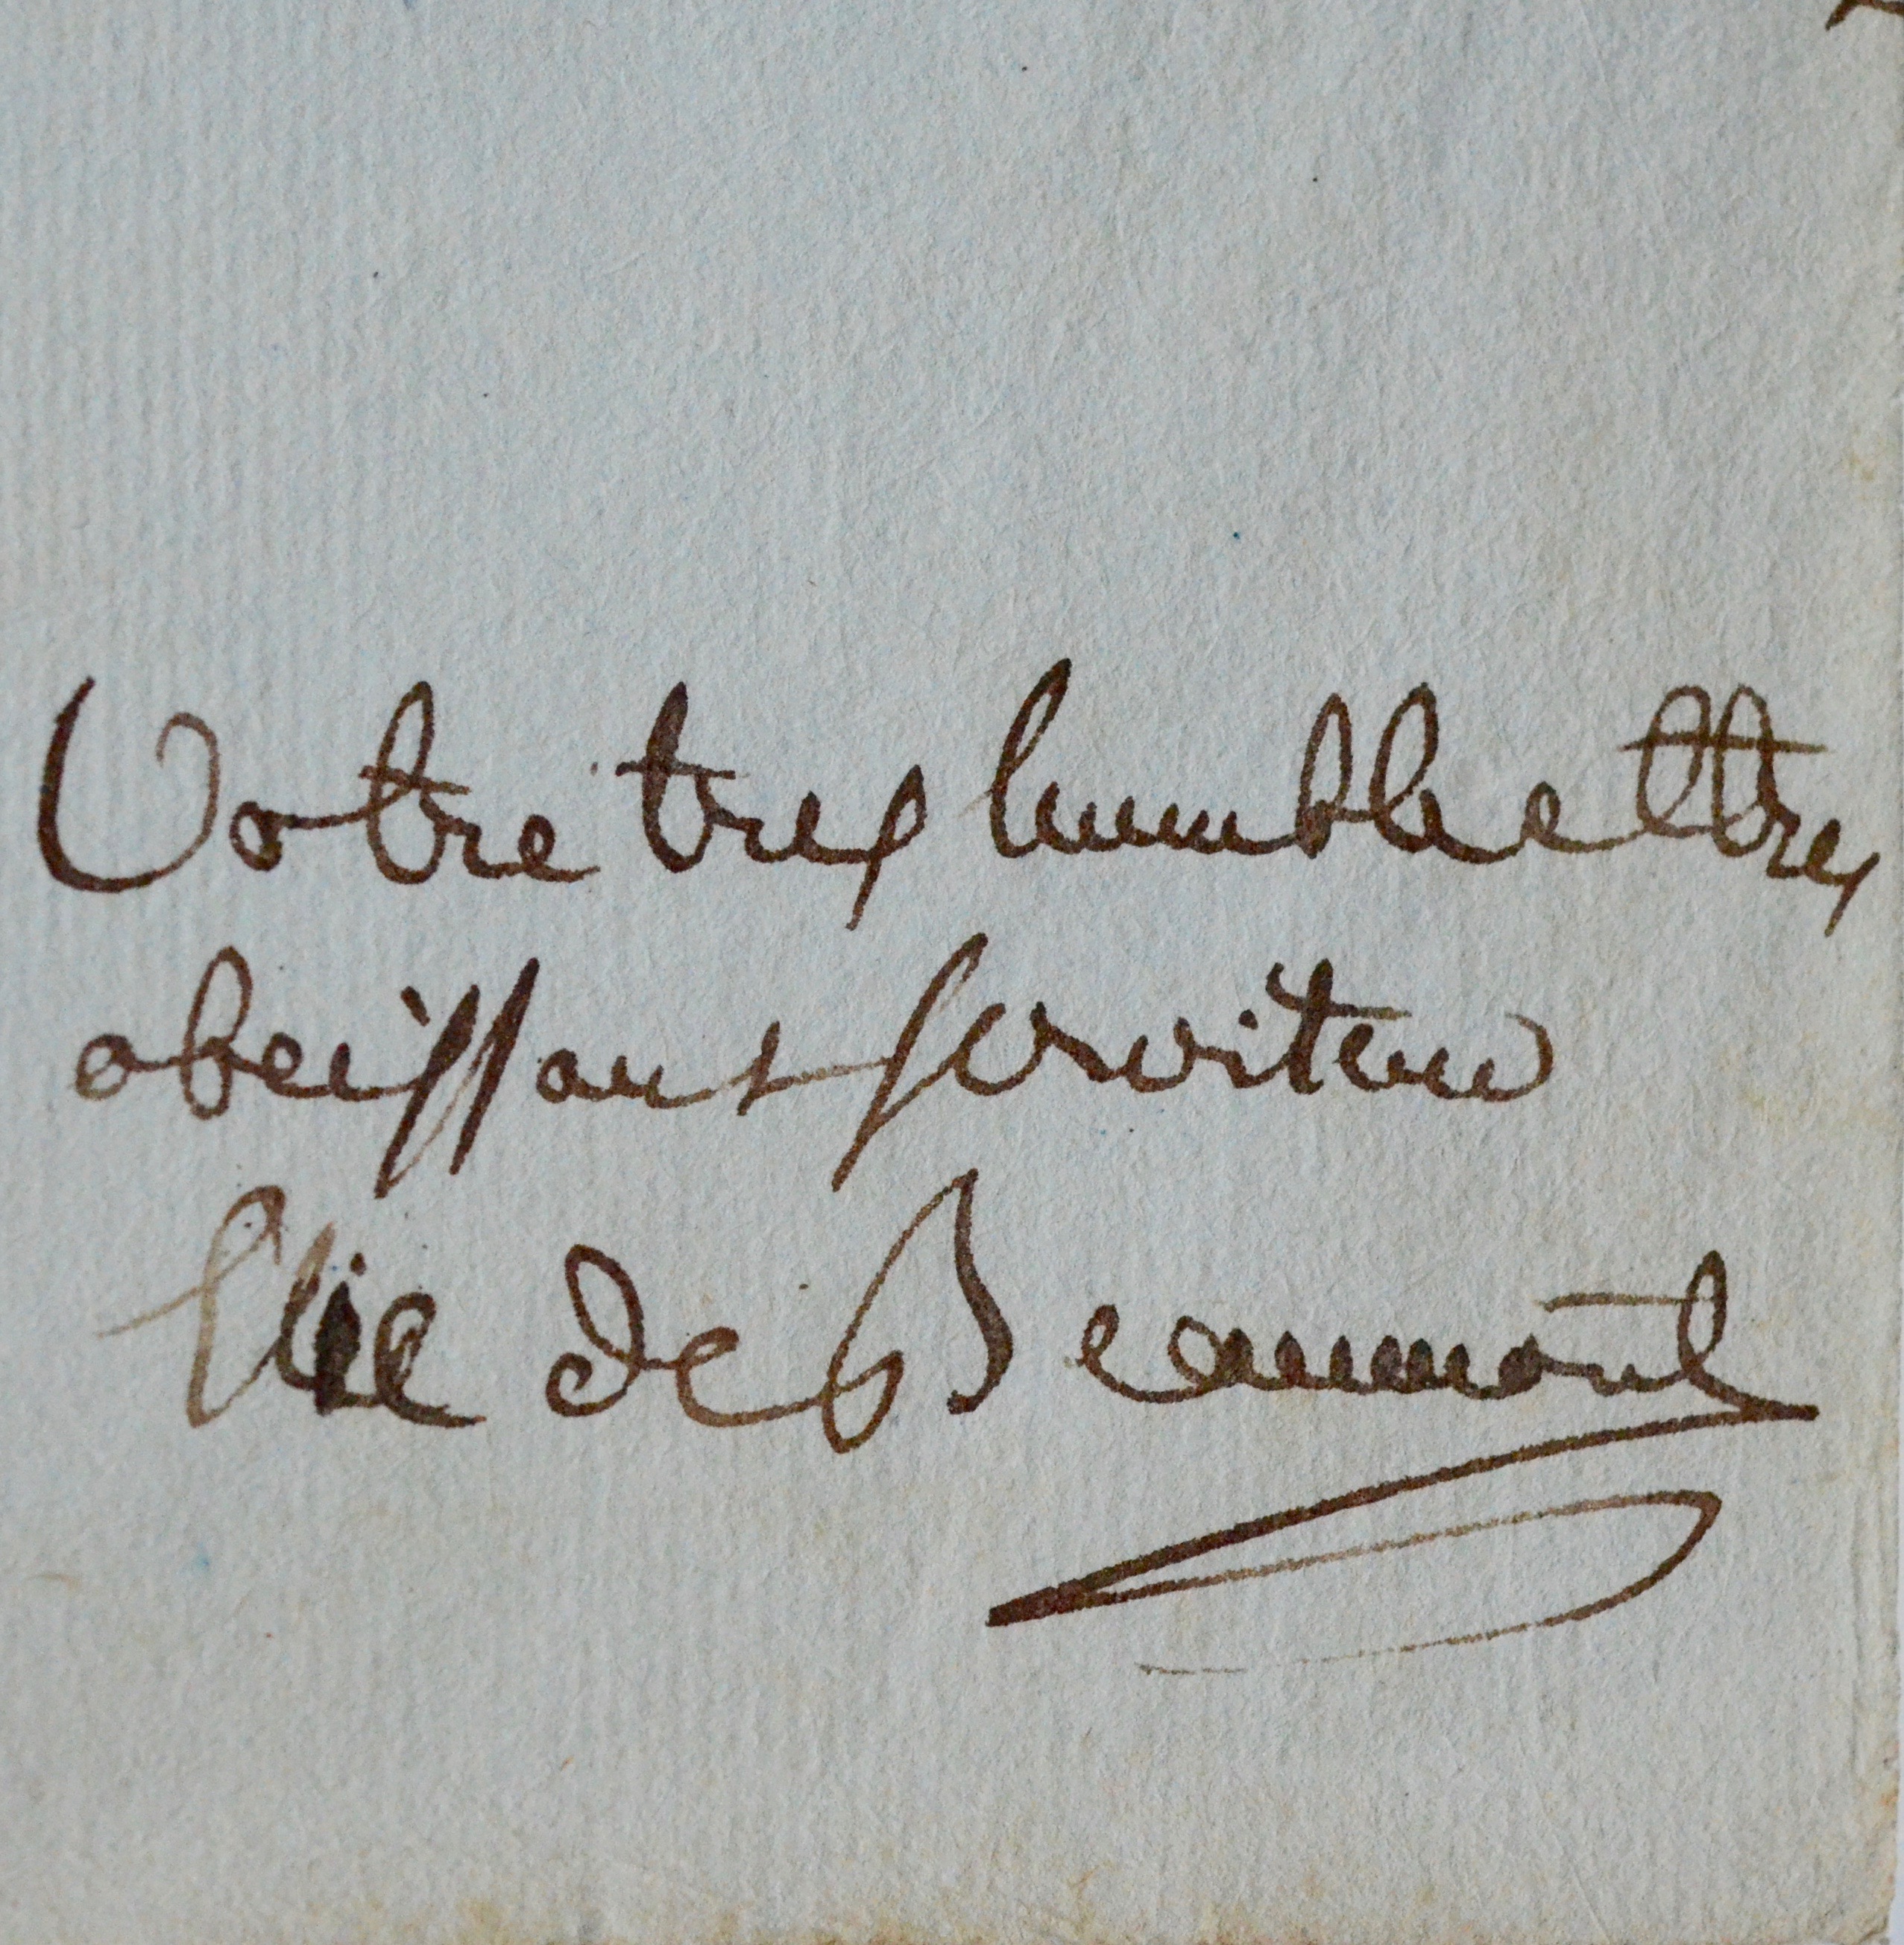 Votre tres humble et tres
obeissant serviteur
Elie de Beaumont